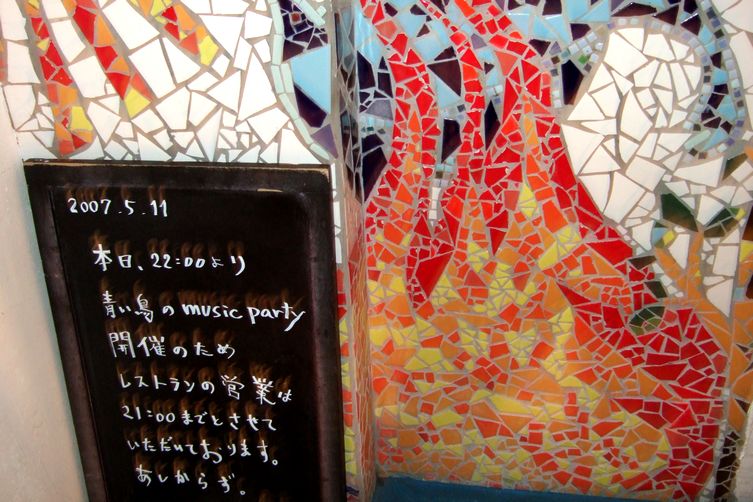 2007.5.11
本日、22:00より
青い鳥のmusic party
開催のため
レストランの営業は
21:00までとさせて
いただいております。
あしからず。